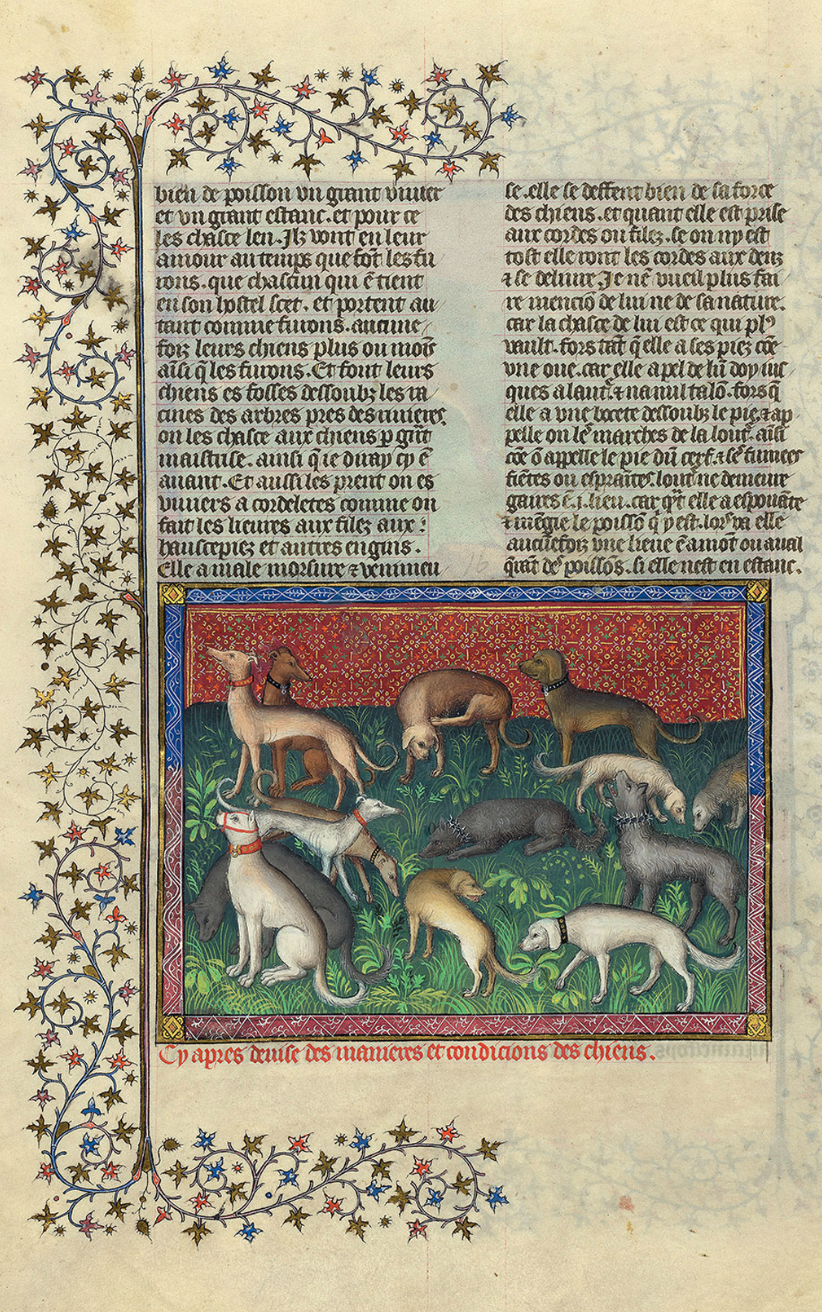 bien de poisson un grant vivier
et un grant estanc. et pour ce
les chasce len. Ilz vont en leur
amour au temps que fōt les fu
rons. que chascun qui ē tient
en son hostel scet. et portent au
tant comme fuirons. aucune
foiz leurs chiens plus ou moīs
aīsi q̄ les furons. Et font leurs
chiens es fosses dessoubz les ra
cines des arbres pres des rivieres
on les chasce aux chiens p grāt
maistrise. ainsi q̄ ie diray cy ē
avant. Et aussi les prent on es
viviers a cordeletes comme on
fait les lievres aux filez aux
haussepiez et autres engins.
Elle a male morsure ⁊ venimeu
se. elle se deffent bien de sa force
des chiens. et quant elle est prise
aux cordes ou filez. se on ny est
tost elle ront les cordes aux denz
⁊ se delivre Je nē vueil plus fai
re menciō de lui ne de sa nature.
car la chasce de lui est ce qui plꝰ
vault. fors tāt q̄ elle a ses piez cōe
une oue. car elle a pel de lū doy ius
ques a lautͤ. ⁊ na nul talō. fors q̄
elle a une bocete dessoubz le pie. ⁊ ap
pelle on le marches de la loutͤ. aīsi
cōe ō appelle le pie dū cerf. ⁊ se fumees
fietes ou espraītes. loutͤ ne demeure
gaires ē .i. lieu. car qͣt elle a espouāte
⁊ mēgie le poissō q̄ y est. lors va elle
aucūefoiz une lieue ē amōt ou aval
quāt de poissōs. si elle nest en estanc.
Cy apres devise des manieres et condicions des chiens.